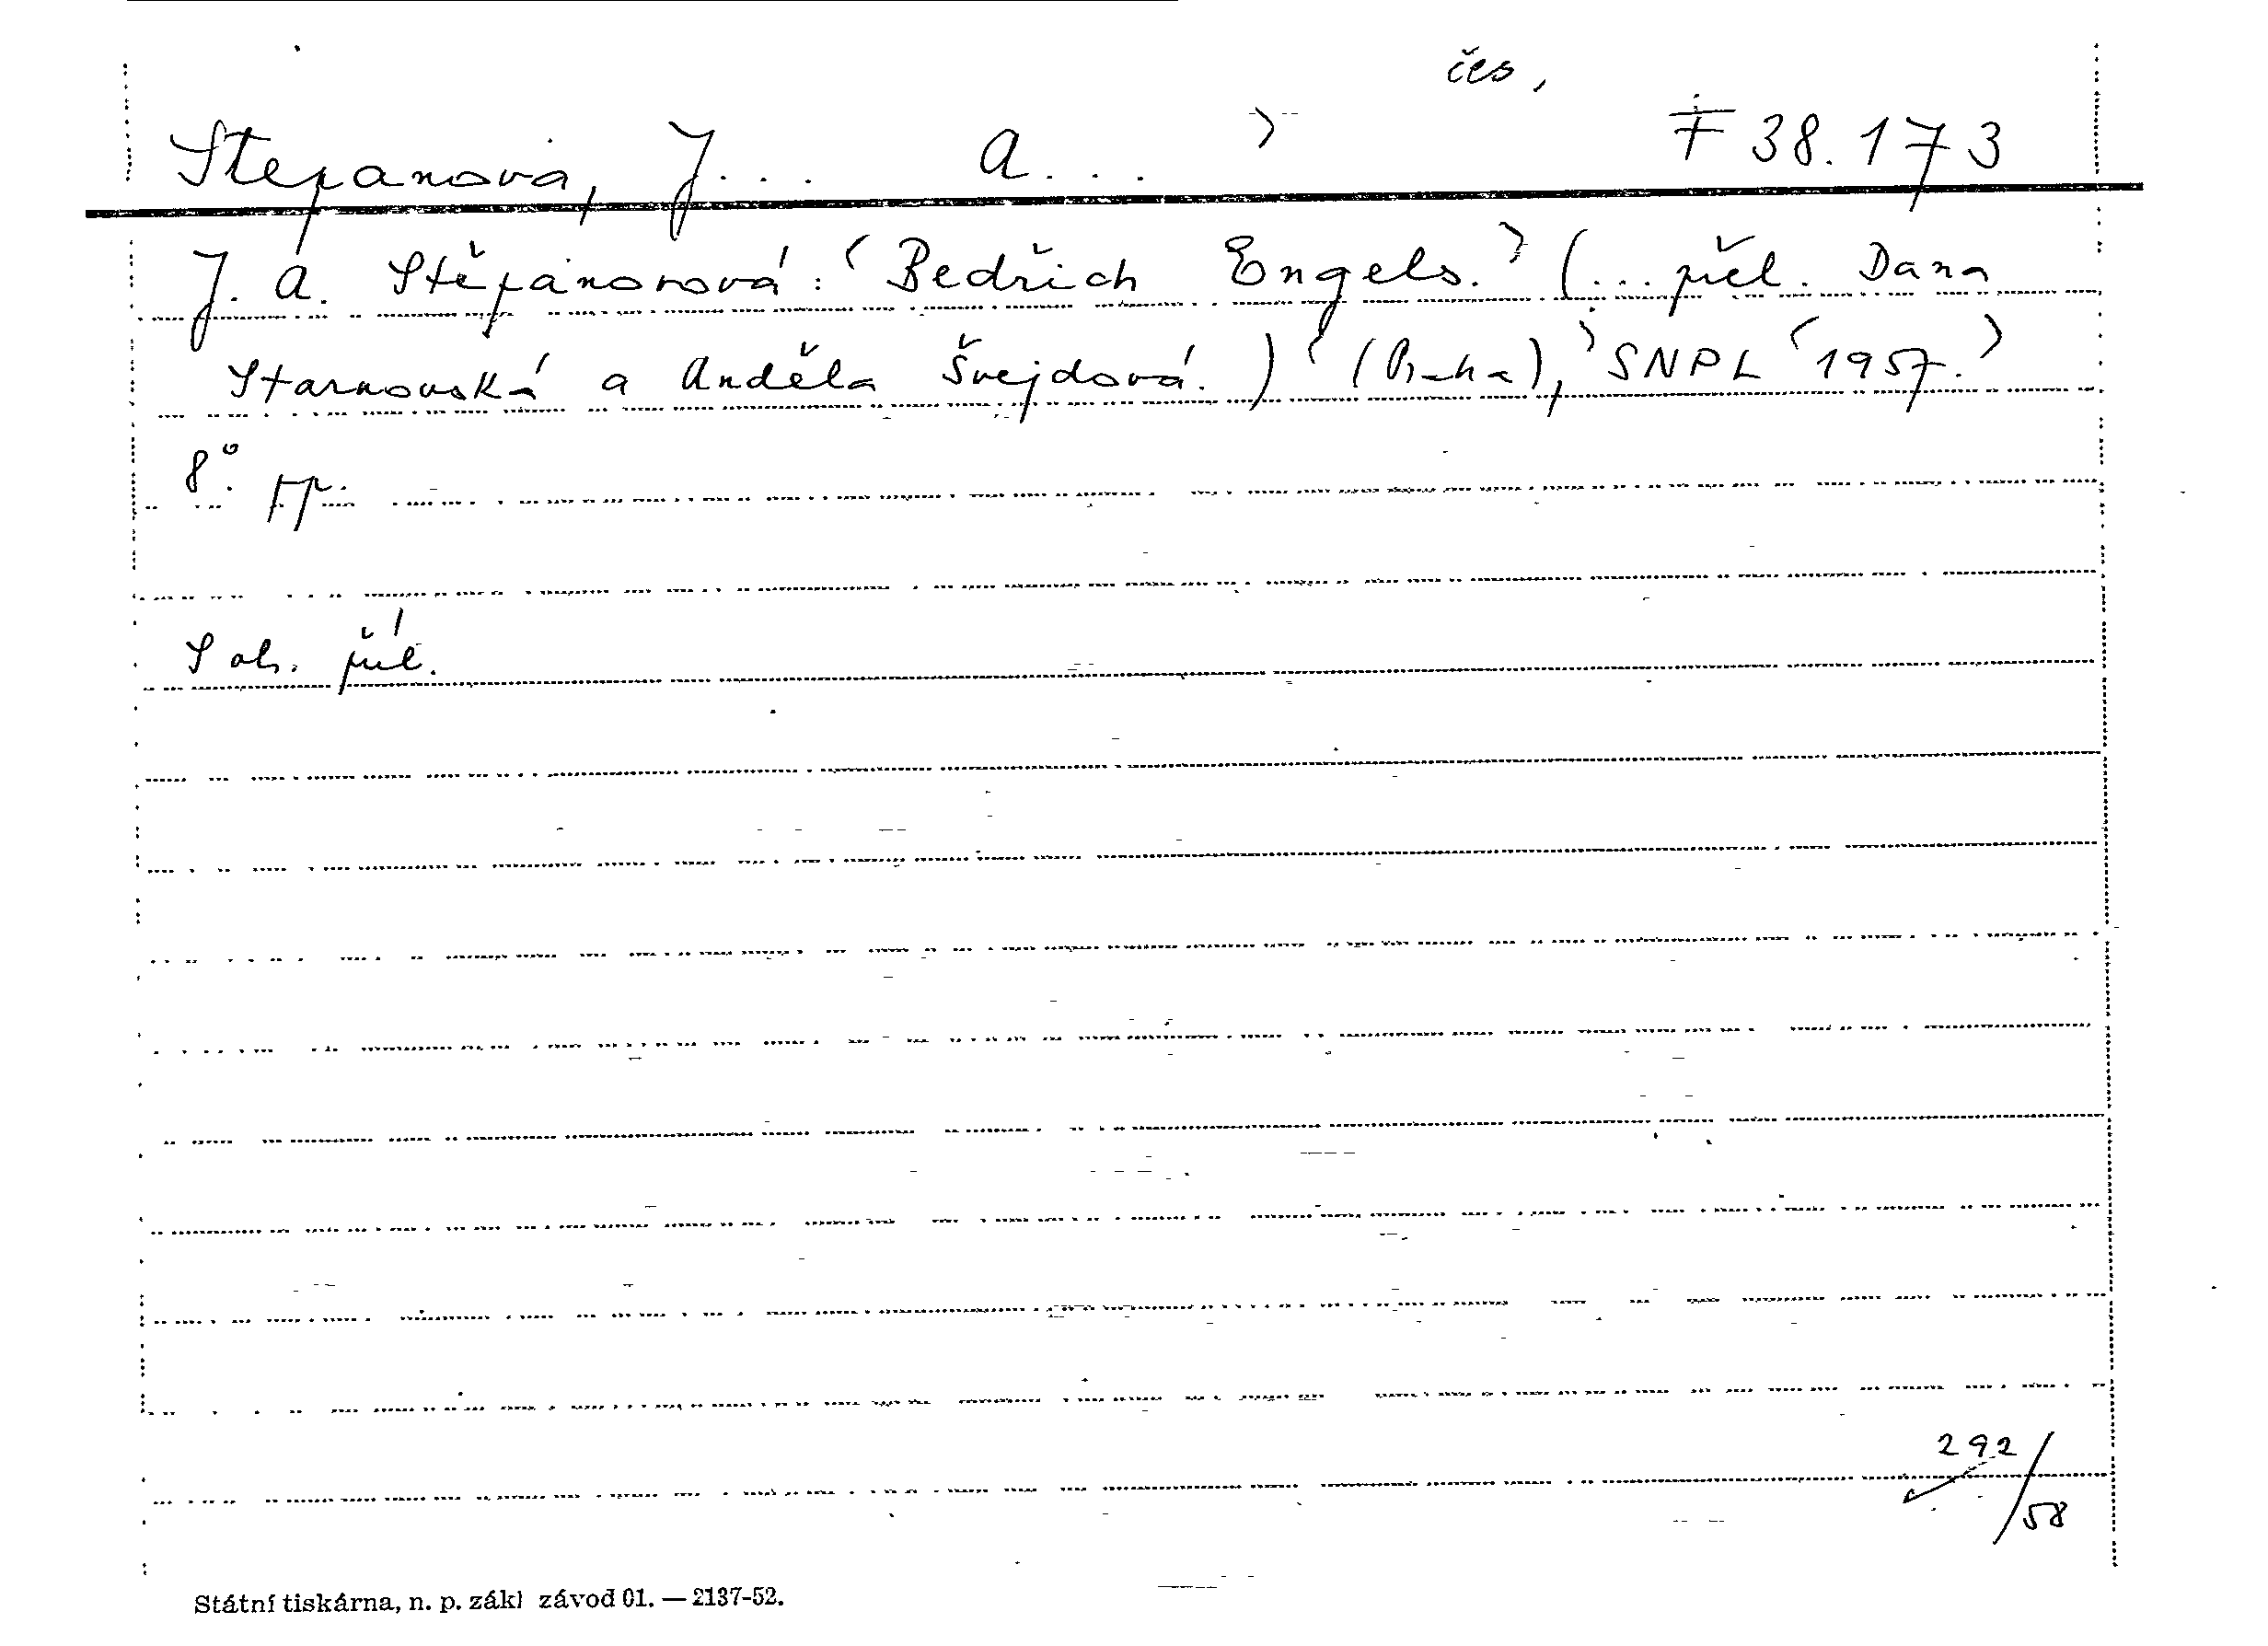 čes,
Stepanova, J... A... ⟩ F 38.173
J. A. Štěpánovová: ⟨Bedřich Engels.⟩ (... přel. Dana
Starnovská a Anděla Švejdová.) ⟨(Praha),⟩ SNPL ⟨1957.⟩
8°. pp.
S ob. příl.
292/58
Státní tiskárna, n. p. zákl závod 01. — 2137-52.